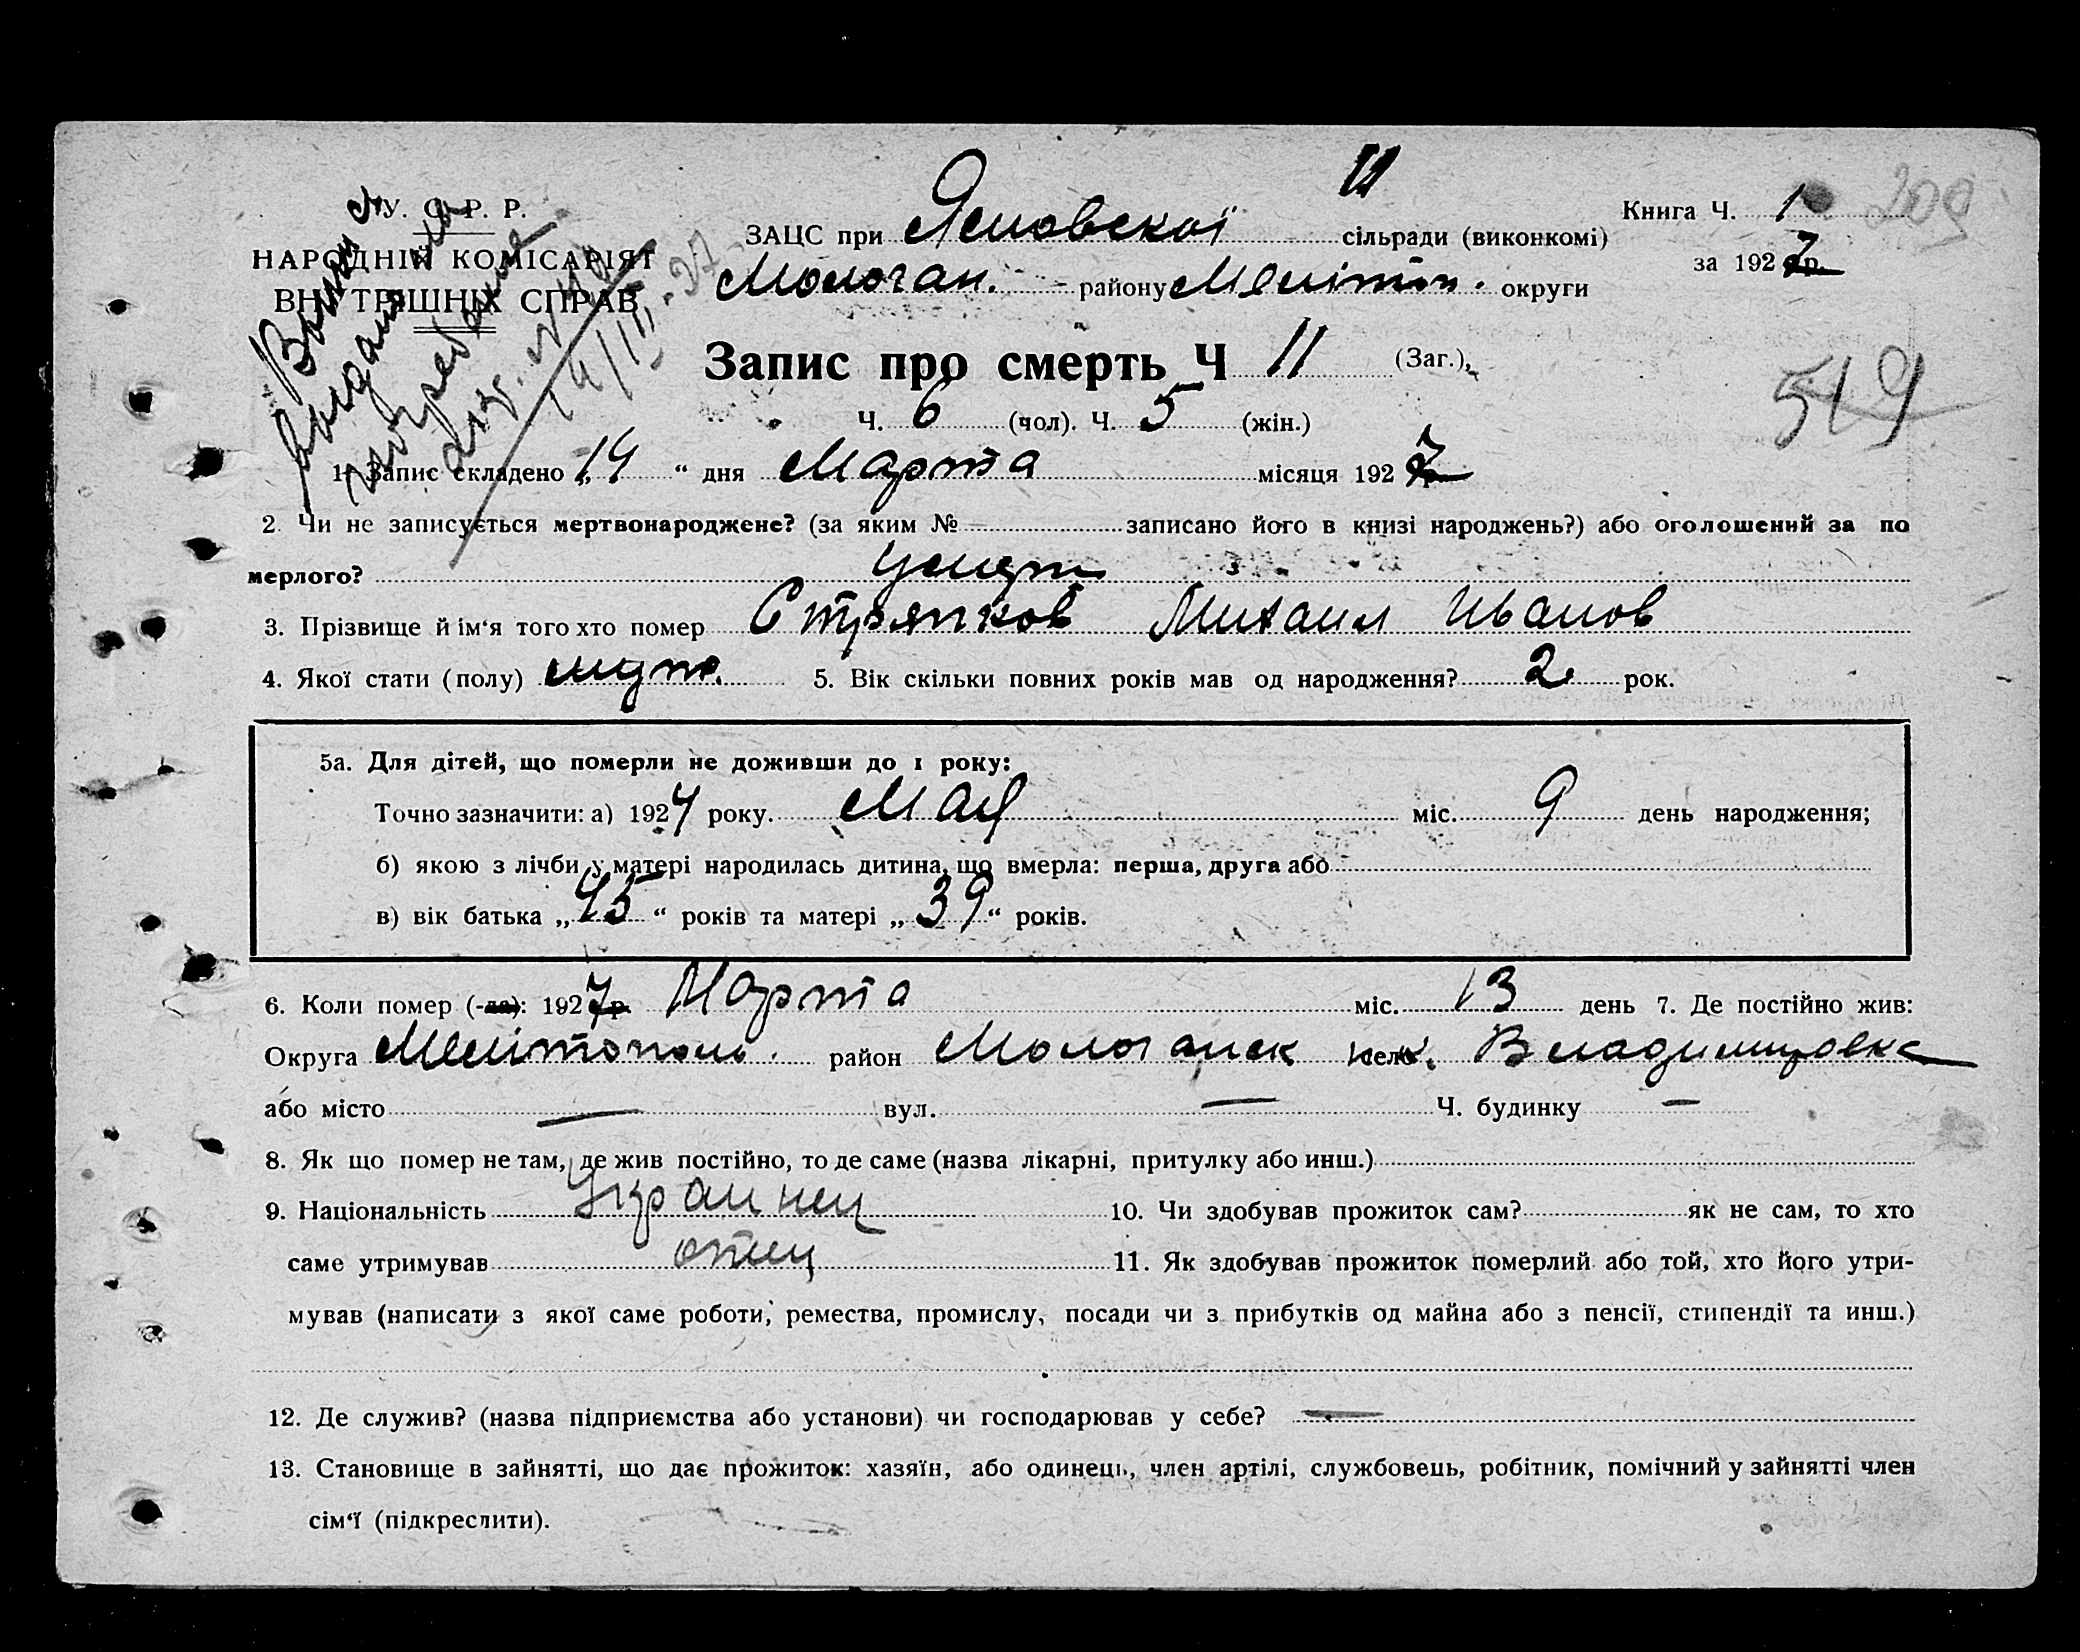 У. С. Р. Р.
НАРОДНІЙ КОМІСАРІЯТ
ВНУТРІШНІХ СПРАВ
Выпись выдана на погребение
14/III.27
209
11
ЗАЦС при Ясиовской сільради (виконкомі)
Книга Ч. 1
за 1927 р.
Мологан. району Меліпіт. округи
Запис про смерть Ч 11 (Заг.),
519
Ч. 6 (чол). Ч. 5 (жін.)
1. Запис складено „14 “ дня Марта місяця 1927
2. Чи не записується мертвонароджене? (за яким № записано його в книзі народжень?) або оголошений за по
мерлого?
3. Прізвище й ім‘я того хто помер Стряпков Михаил Иванов
4. Якої стати (полу) муж. 5. Вік скільки повних років мав од народження? 2 рок.
5а. Для дітей, що померли не доживши до 1 року:
Точно зазначити: а) 1924 року. Мая міс. 9 день народження;
б) якою з лічби у матері народилась дитина, що вмерла: перша, друга або
в) вік батька „45“ років та матері „39“ років.
6. Коли помер (-ла): 1927 р. Марта міс. 13 день 7. Де постійно жив:
Округа Мелітополь. район Мологанск село. Владимировка
або місто — вул. — Ч. будинку —
8. Як що помер не там, де жив постійно, то де саме (назва лікарні, притулку або инш.)
9. Національність Украинец 10. Чи здобував прожиток сам? як не сам, то хто
саме утримував отец 11. Як здобував прожиток померлий або той, хто його утри-
мував (написати з якої саме роботи, ремества, промислу, посади чи з прибутків од майна або з пенсії, стипендії та инш.)
12. Де служив? (назва підприємства або установи) чи господарював у себе? —
13. Становище в зайнятті, що дає прожиток: хазяїн, або одинець, член артілі, службовець, робітник, помічний у зайнятті член
сім‘ї (підкреслити).